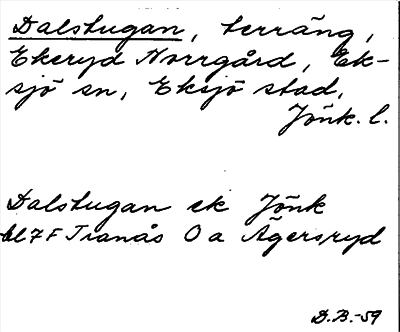 Dalstugan, terräng,
Ekeryd Norrgård, Ek-
sjö sn, Eksjö stad,
Jönk. l.
Dalstugan ek Jönk
bl 7 F Tranås O a Agersryd
D.B.-59